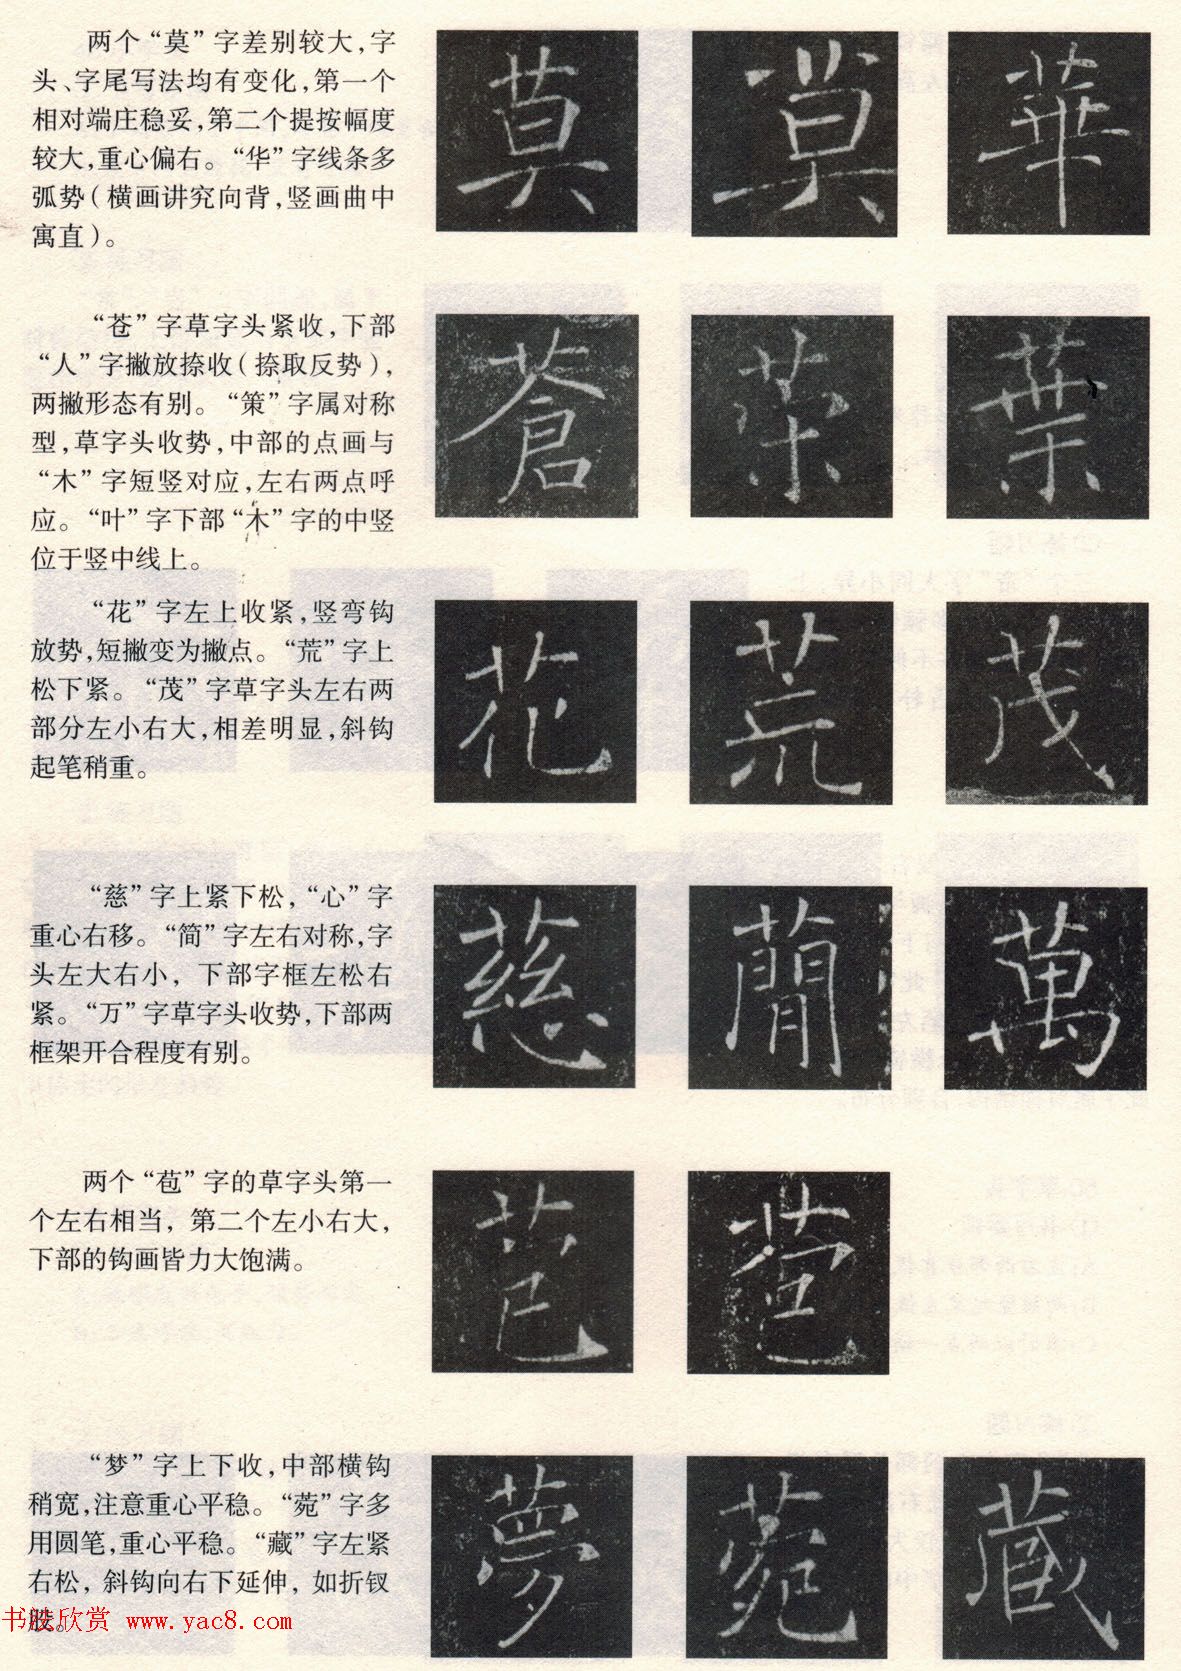 两个“莫”字差别较大，字
头、字尾写法均有变化，第一个
相对端庄稳妥，第二个提按幅度
较大，重心偏右。“华”字线条多
弧势（横画讲究向背，竖画曲中
寓直）。
莫 莫 華
“苍”字草字头紧收，下部
“人”字撇放捺收（捺取反势），
两撇形态有别。“策”字属对称
型，草字头收势，中部的点画与
“木”字短竖对应，左右两点呼
应。“叶”字下部“木”字的中竖
位于竖中线上。
蒼 葉
“花”字左上收紧，竖弯钩
放势，短撇变为撇点。“荒”字上
松下紧。“茂”字草字头左右两
部分左小右大，相差明显，斜钩
起笔稍重。
花 荒 茂
“慈”字上紧下松，“心”字
重心右移。“简”字左右对称，字
头左大右小，下部字框左松右
紧。“万”字草字头收势，下部两
框架开合程度有别。
慈 蕳 萬
两个“苞”字的草字头第一
个左右相当，第二个左小右大，
下部的钩画皆力大饱满。
苞
“梦”字上下收，中部横钩
稍宽，注意重心平稳。“菀”字多
用圆笔，重心平稳。“藏”字左紧
右松，斜钩向右下延伸，如折钗
股。
夢 菀 藏
书法欣赏 www.yac8.com